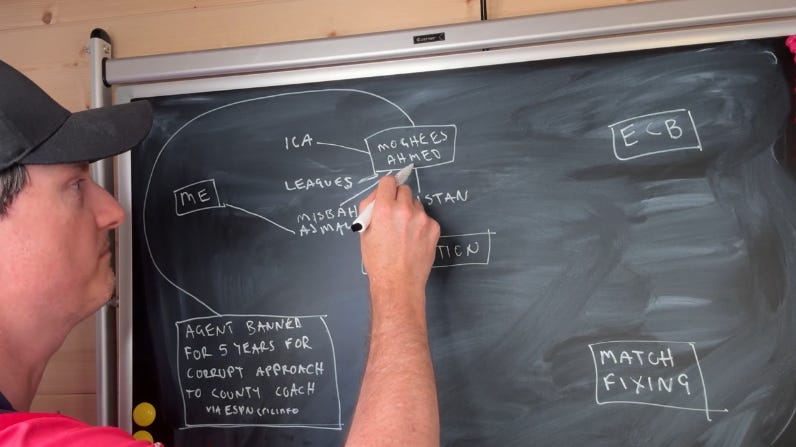 ICA
MOGHEES
AHMED
ECB
LEAGUES
ME
MISBAH
AGENT BANNED
FOR 5 YEARS FOR
CORRUPT APPROACH
TO COUNTY COACH
VIA ESPN CRICINFO
MATCH
FIXING